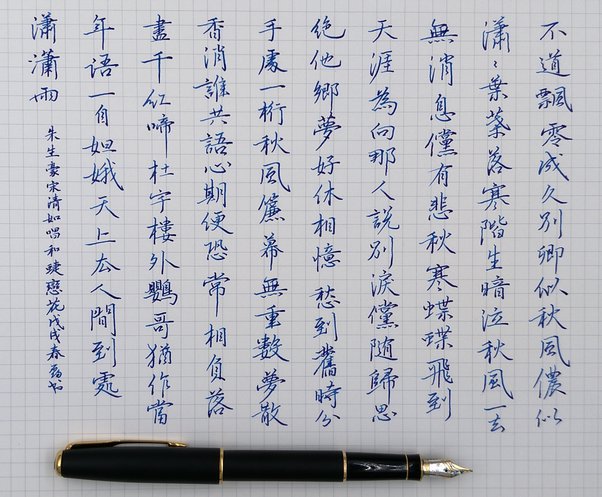 不道飄零成久別卿似秋風儂似
瀟〻葉葉落寒階生暗泣秋風一去
無消息儻有悲秋寒蝶蝶飛到
天涯為向那人説別淚儻隨歸思
絶他鄉夢好休相憶愁到舊時分
手處一桁秋風簾幕無重數夢散
香消誰共語心期便恐常相負落
盡千紅啼杜宇樓外鸚哥猶作當
年語一自姮娥天上去人間到處
瀟瀟雨
朱生豪宋清如唱和蝶戀花戊戌春书